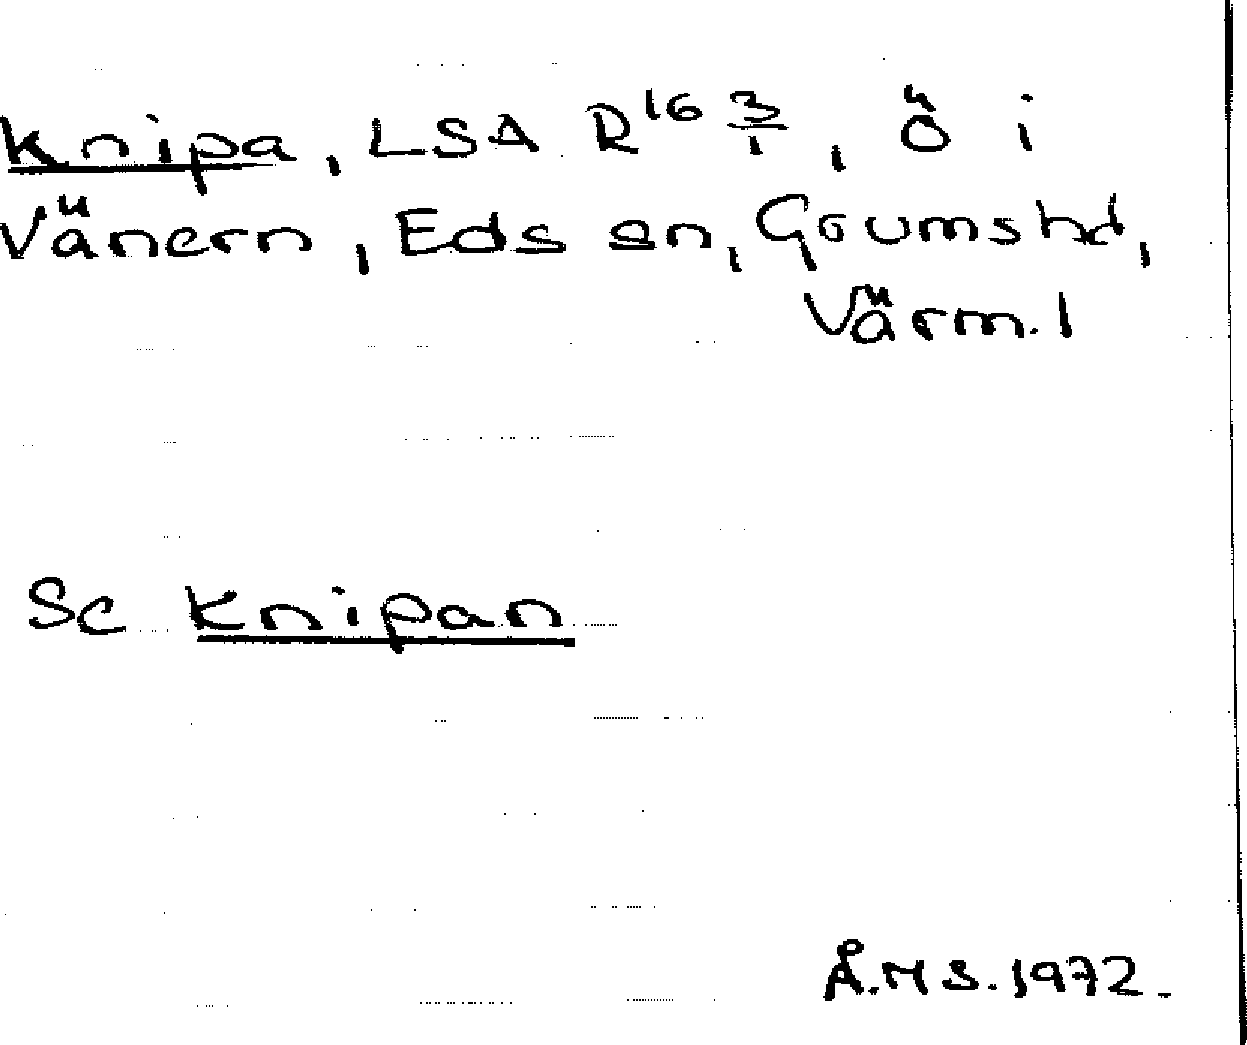 Knipa, LSA R16 3/1, ö i
Vänern, Eds sn, Grums hd,
Värml
Se Knipan
Å.M S. 1972.